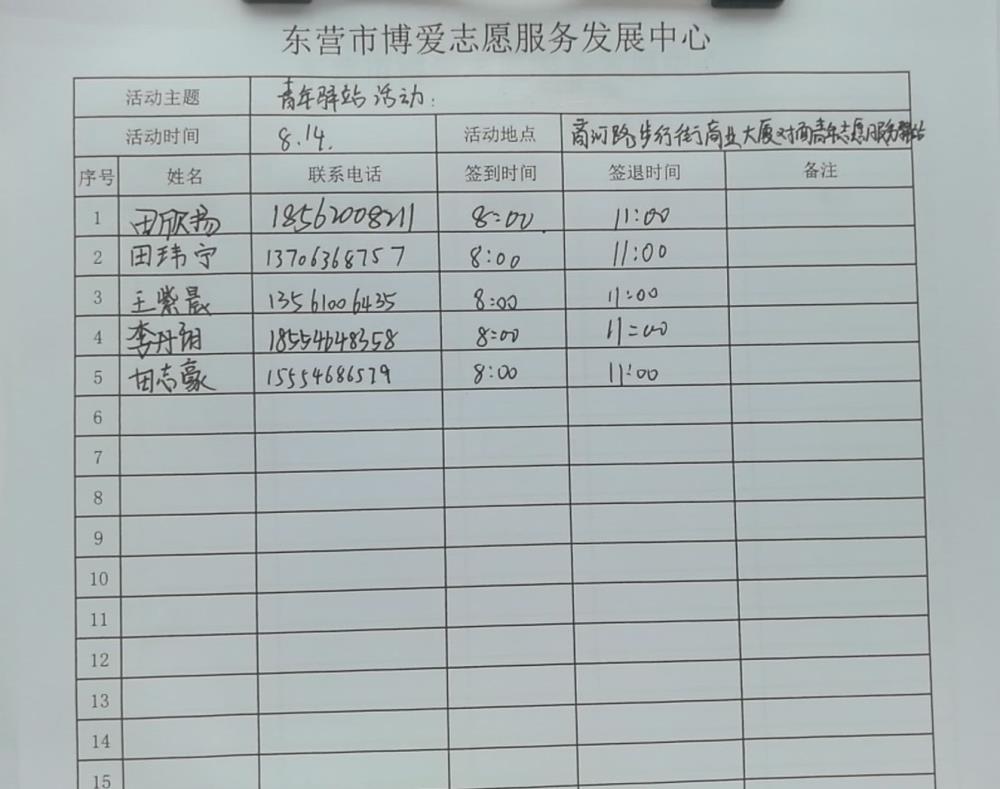 东营市博爱志愿服务发展中心
活动主题 青年驿站活动:
活动时间 8.14. 活动地点 商河路步行街商业大厦对面青年志愿服务驿站
序号 姓名 联系电话 签到时间 签退时间 备注
1 田欣扬 18562008211 8:00 11:00
2 田玮宁 13706368757 8:00 11:00
3 王紫晨 13561006435 8:00 11:00
4 李丹翔 18554648358 8:00 11:00
5 田志豪 15554686579 8:00 11:00
6
7
8
9
10
11
12
13
14
15